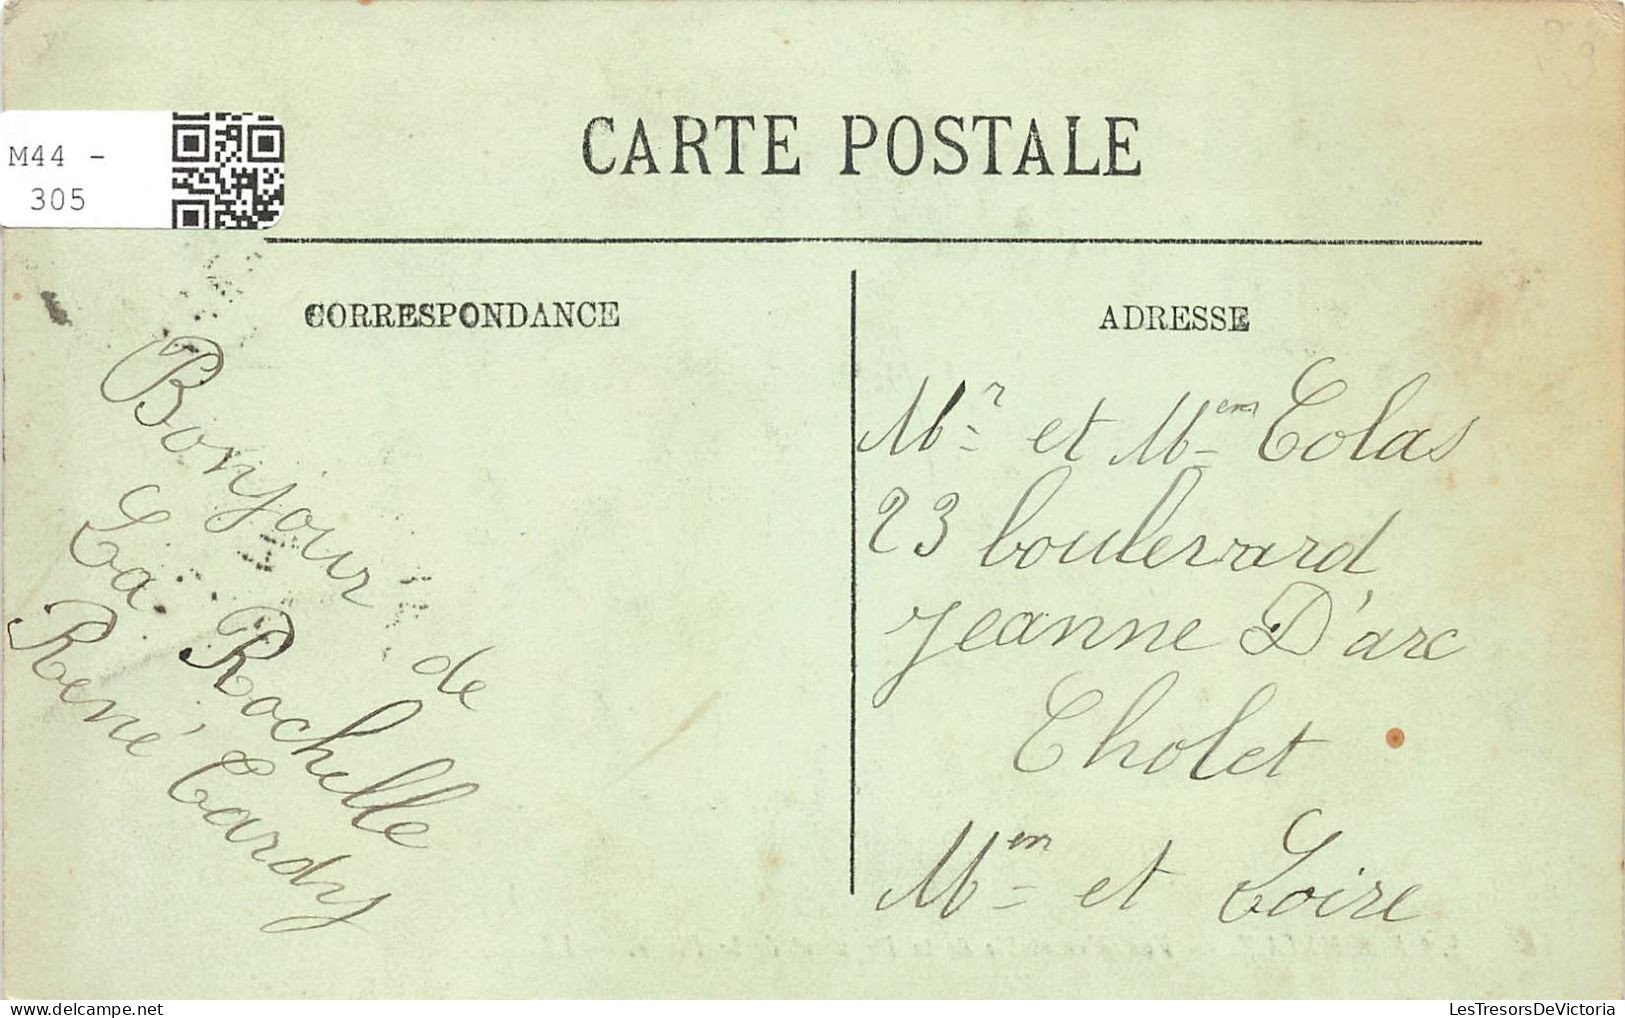 M44 -
305
CARTE POSTALE
CORRESPONDANCE
Bonjour de
La Rochelle
René Tardy
ADRESSE
Mr et Mem Colas
23 boulevard
Jeanne D'arc
Cholet
Mem et Loire
LesTresorsDeVictoria